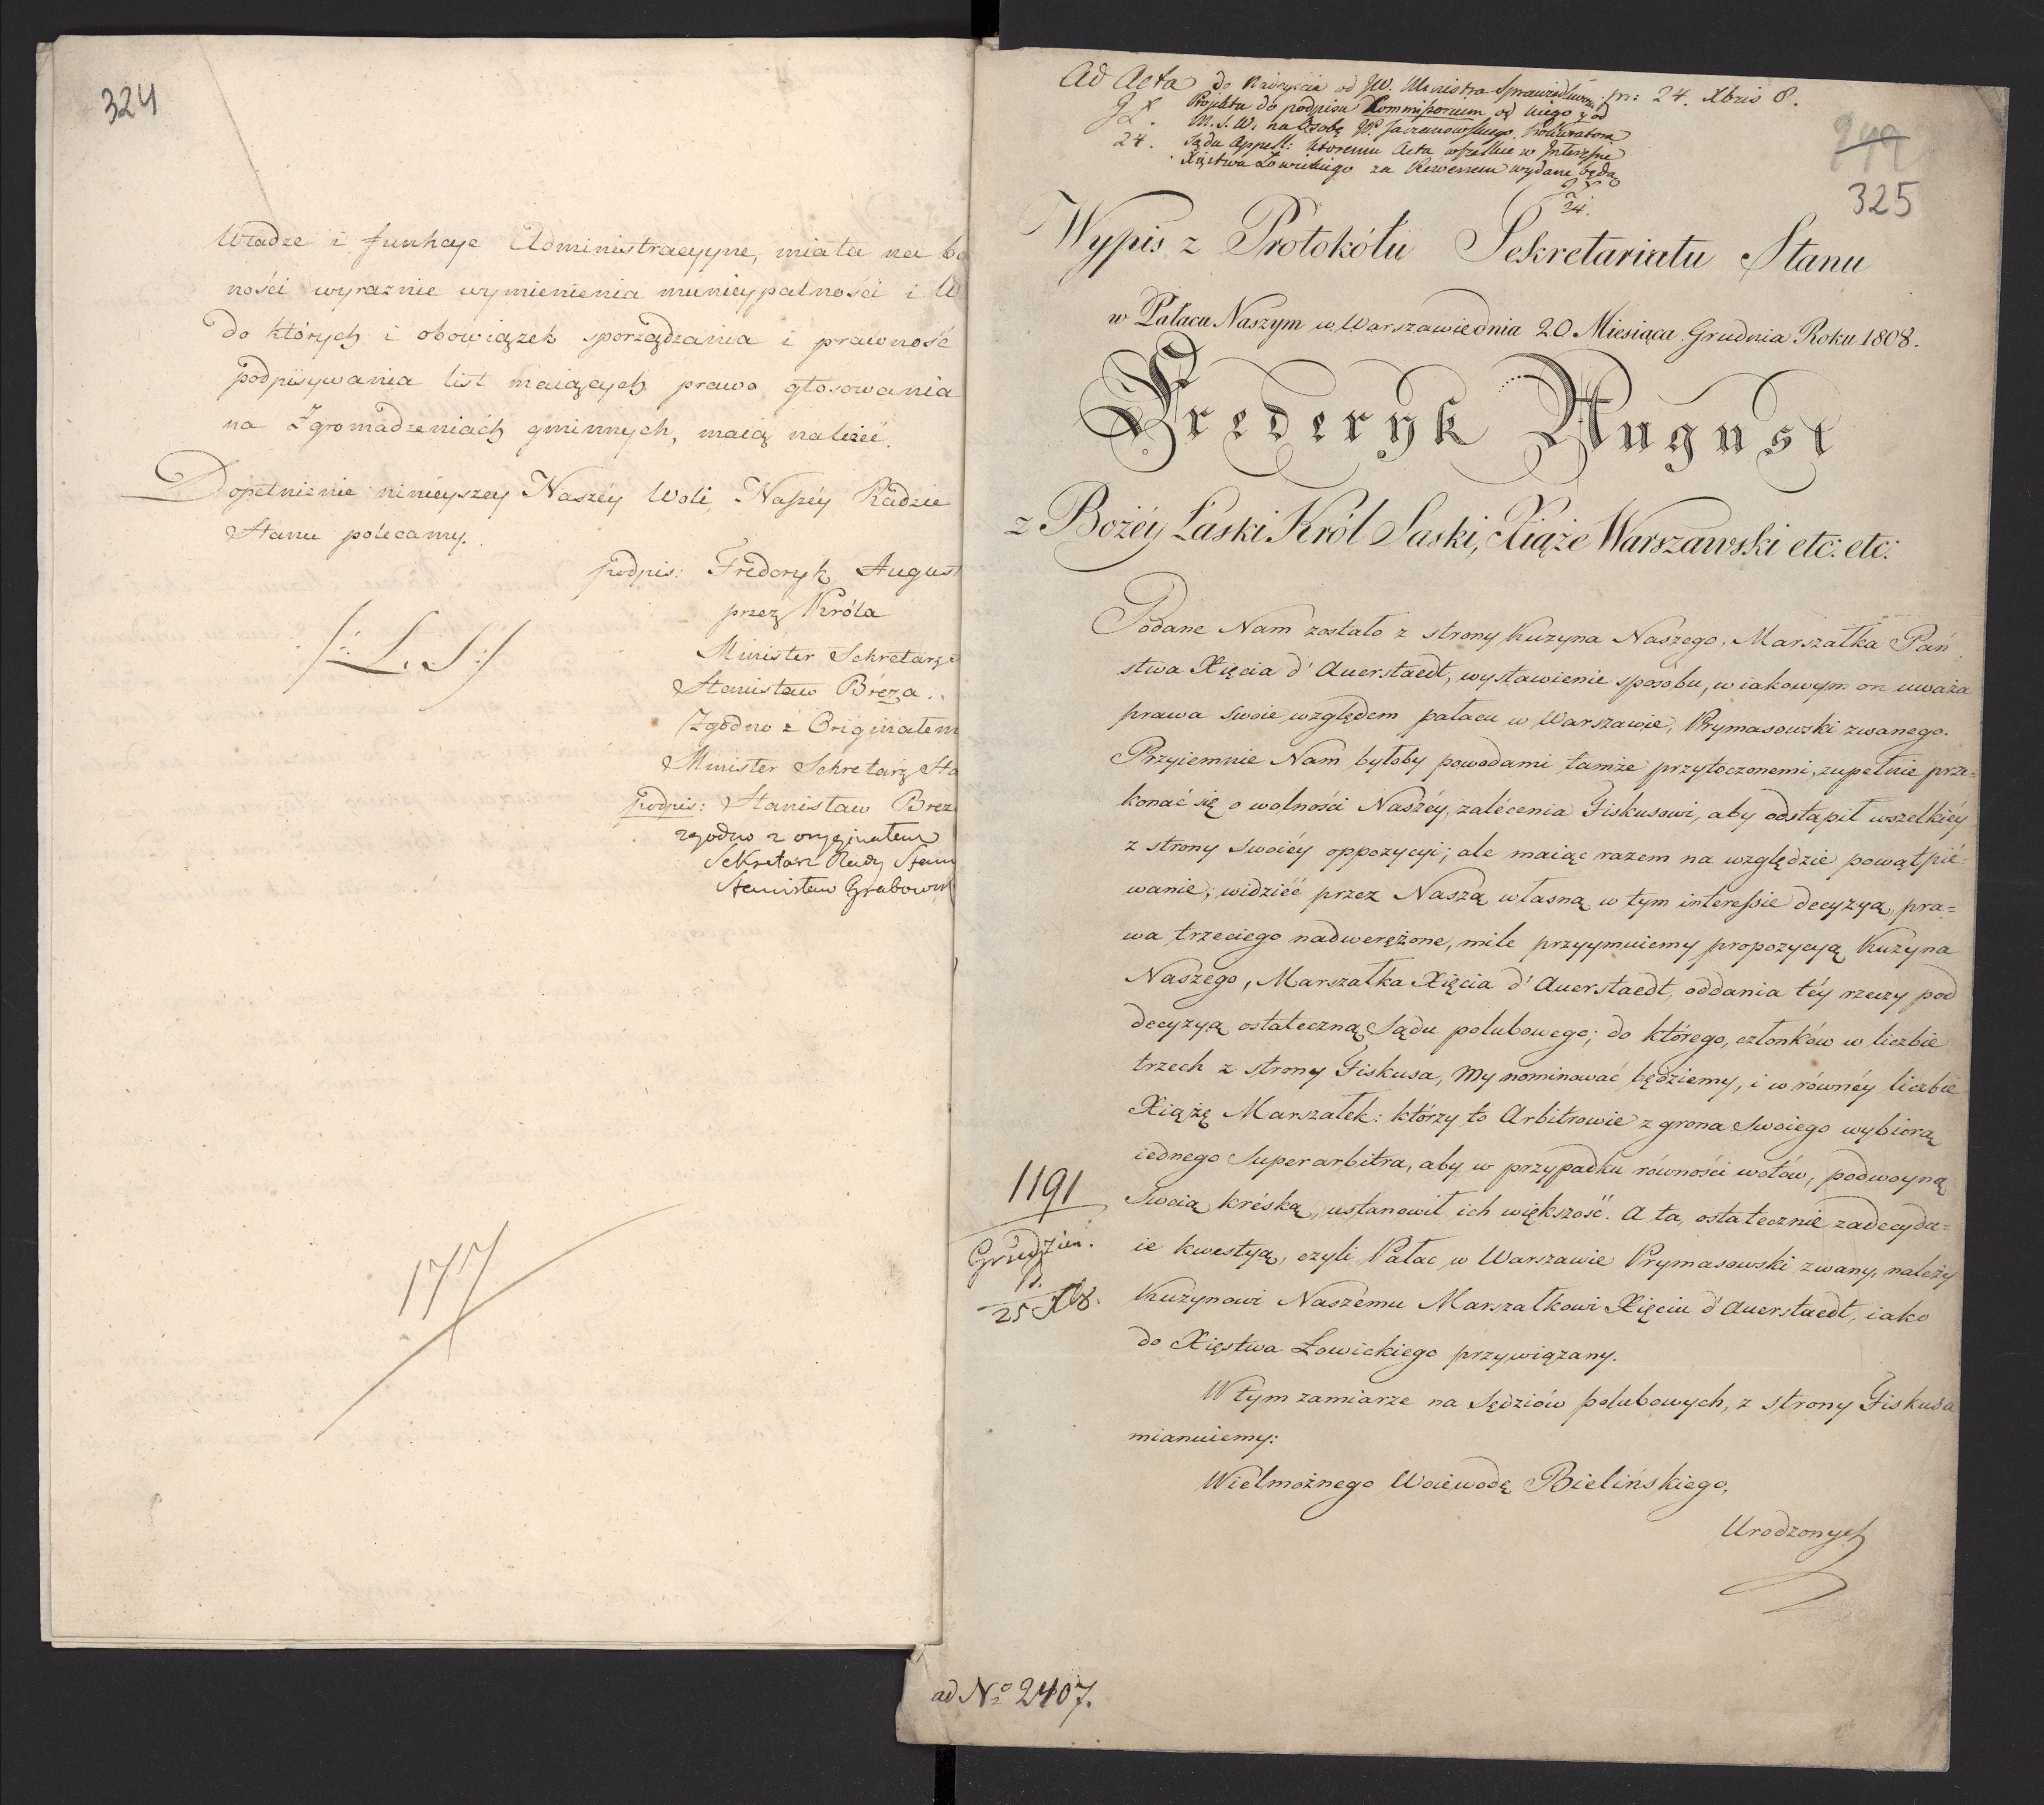 324
Władze i funkcye Administracyyne, miała na
ności wyraznie wymienienia municypalności i
do których i obowiązek sporządzania i prawność
podpisywania list maiących prawo głosowania
na Zgromadzeniach gminnych, maią należeć.
Dopełnienie ninieyszey Naszéy Woli, Naszéy Radzie
Stanu polécamy.
podpis: Frederyk August
przez Króla
/: L. S :/
Minister Sekretarz
Stanisław Bréza.
Zgodno z Originałem
Minister Sekretarz Sta
podpis: Stanisław Brez
zgodno z oryginałem
Sekretarz Rady Stanu
Stanisław Grabows
177
Ad Acta do Nadeyścia od JW. Ministra Sprawiedliwości pr: 24. Xbris 8.
Projektu do podpisu Commissorium od niego y od
M. S. W. na Osobę JP. Prokuratora
24. Sądu Appell: któremu Acta wszelkie w Interessie
Xięstwa Łowickiego za Rewersem wydane będą
24.
325
Wypis z Protokółu Sekretariatu Stanu
w Pałacu Naszym w Warszawie dnia 20 Miesiąca Grudnia Roku 1808.
Frederyk August
z Bożéy Łaski Król Saski, Xiąże Warszawski etc: etc:
Podane Nam zostało z strony Kuzyna Naszego, Marszałka Pań
stwa Xięcia d'Auerstaedt, wystawienie sposobu, w iakowym on uważa
prawa swoie względem pałacu w Warszawie, Prymasowski zwanego.
Przyiemnie Nam byłoby powodami tamże przytoczonemi, zupełnie prze=
konać się o wolności Naszéy, zalécenia Fiskusowi, aby odstąpił wszelkiéy
z strony swoiéy oppozycyi; ale maiąc razem na względzie powątpié=
wanie; widzieć przez Naszą własną w tym interessie decyzyą, pra=
wa trzeciego nadwerężone, mile przyymuiemy propozycyą Kuzyna
Naszego, Marszałka Xięcia d'Auerstaedt, oddania téy rzeczy pod
decyzyą ostateczną Sądu polubowego; do którego, członków w liczbie
trzech z strony Fiskusa, My nominować będziemy, i w równéy liczbie
Xiążę Marszałek: którzy to Arbitrowie z grona swoiego wybiorą
iednego Superarbitra, aby w przypadku równości wotów, podwoyną
Swoią kréską, ustanowił ich większość. A ta, ostatecznie zadecydu=
ie kwestyą, czyli Pałac w Warszawie Prymasowski zwany, należy
Kuzynowi Naszemu Marszałkowi Xięciu d'Auerstaedt, iako
do Xięstwa Łowickiego przywiązany.
1191
Grudzień.
25 Xb8.
W tym zamiarze na Sędziów polubowych, z strony Fiskusa
mianuiemy:
Wielmożnego Woiewodę Bielińskiego,
Urodzonych
ad No 2407.